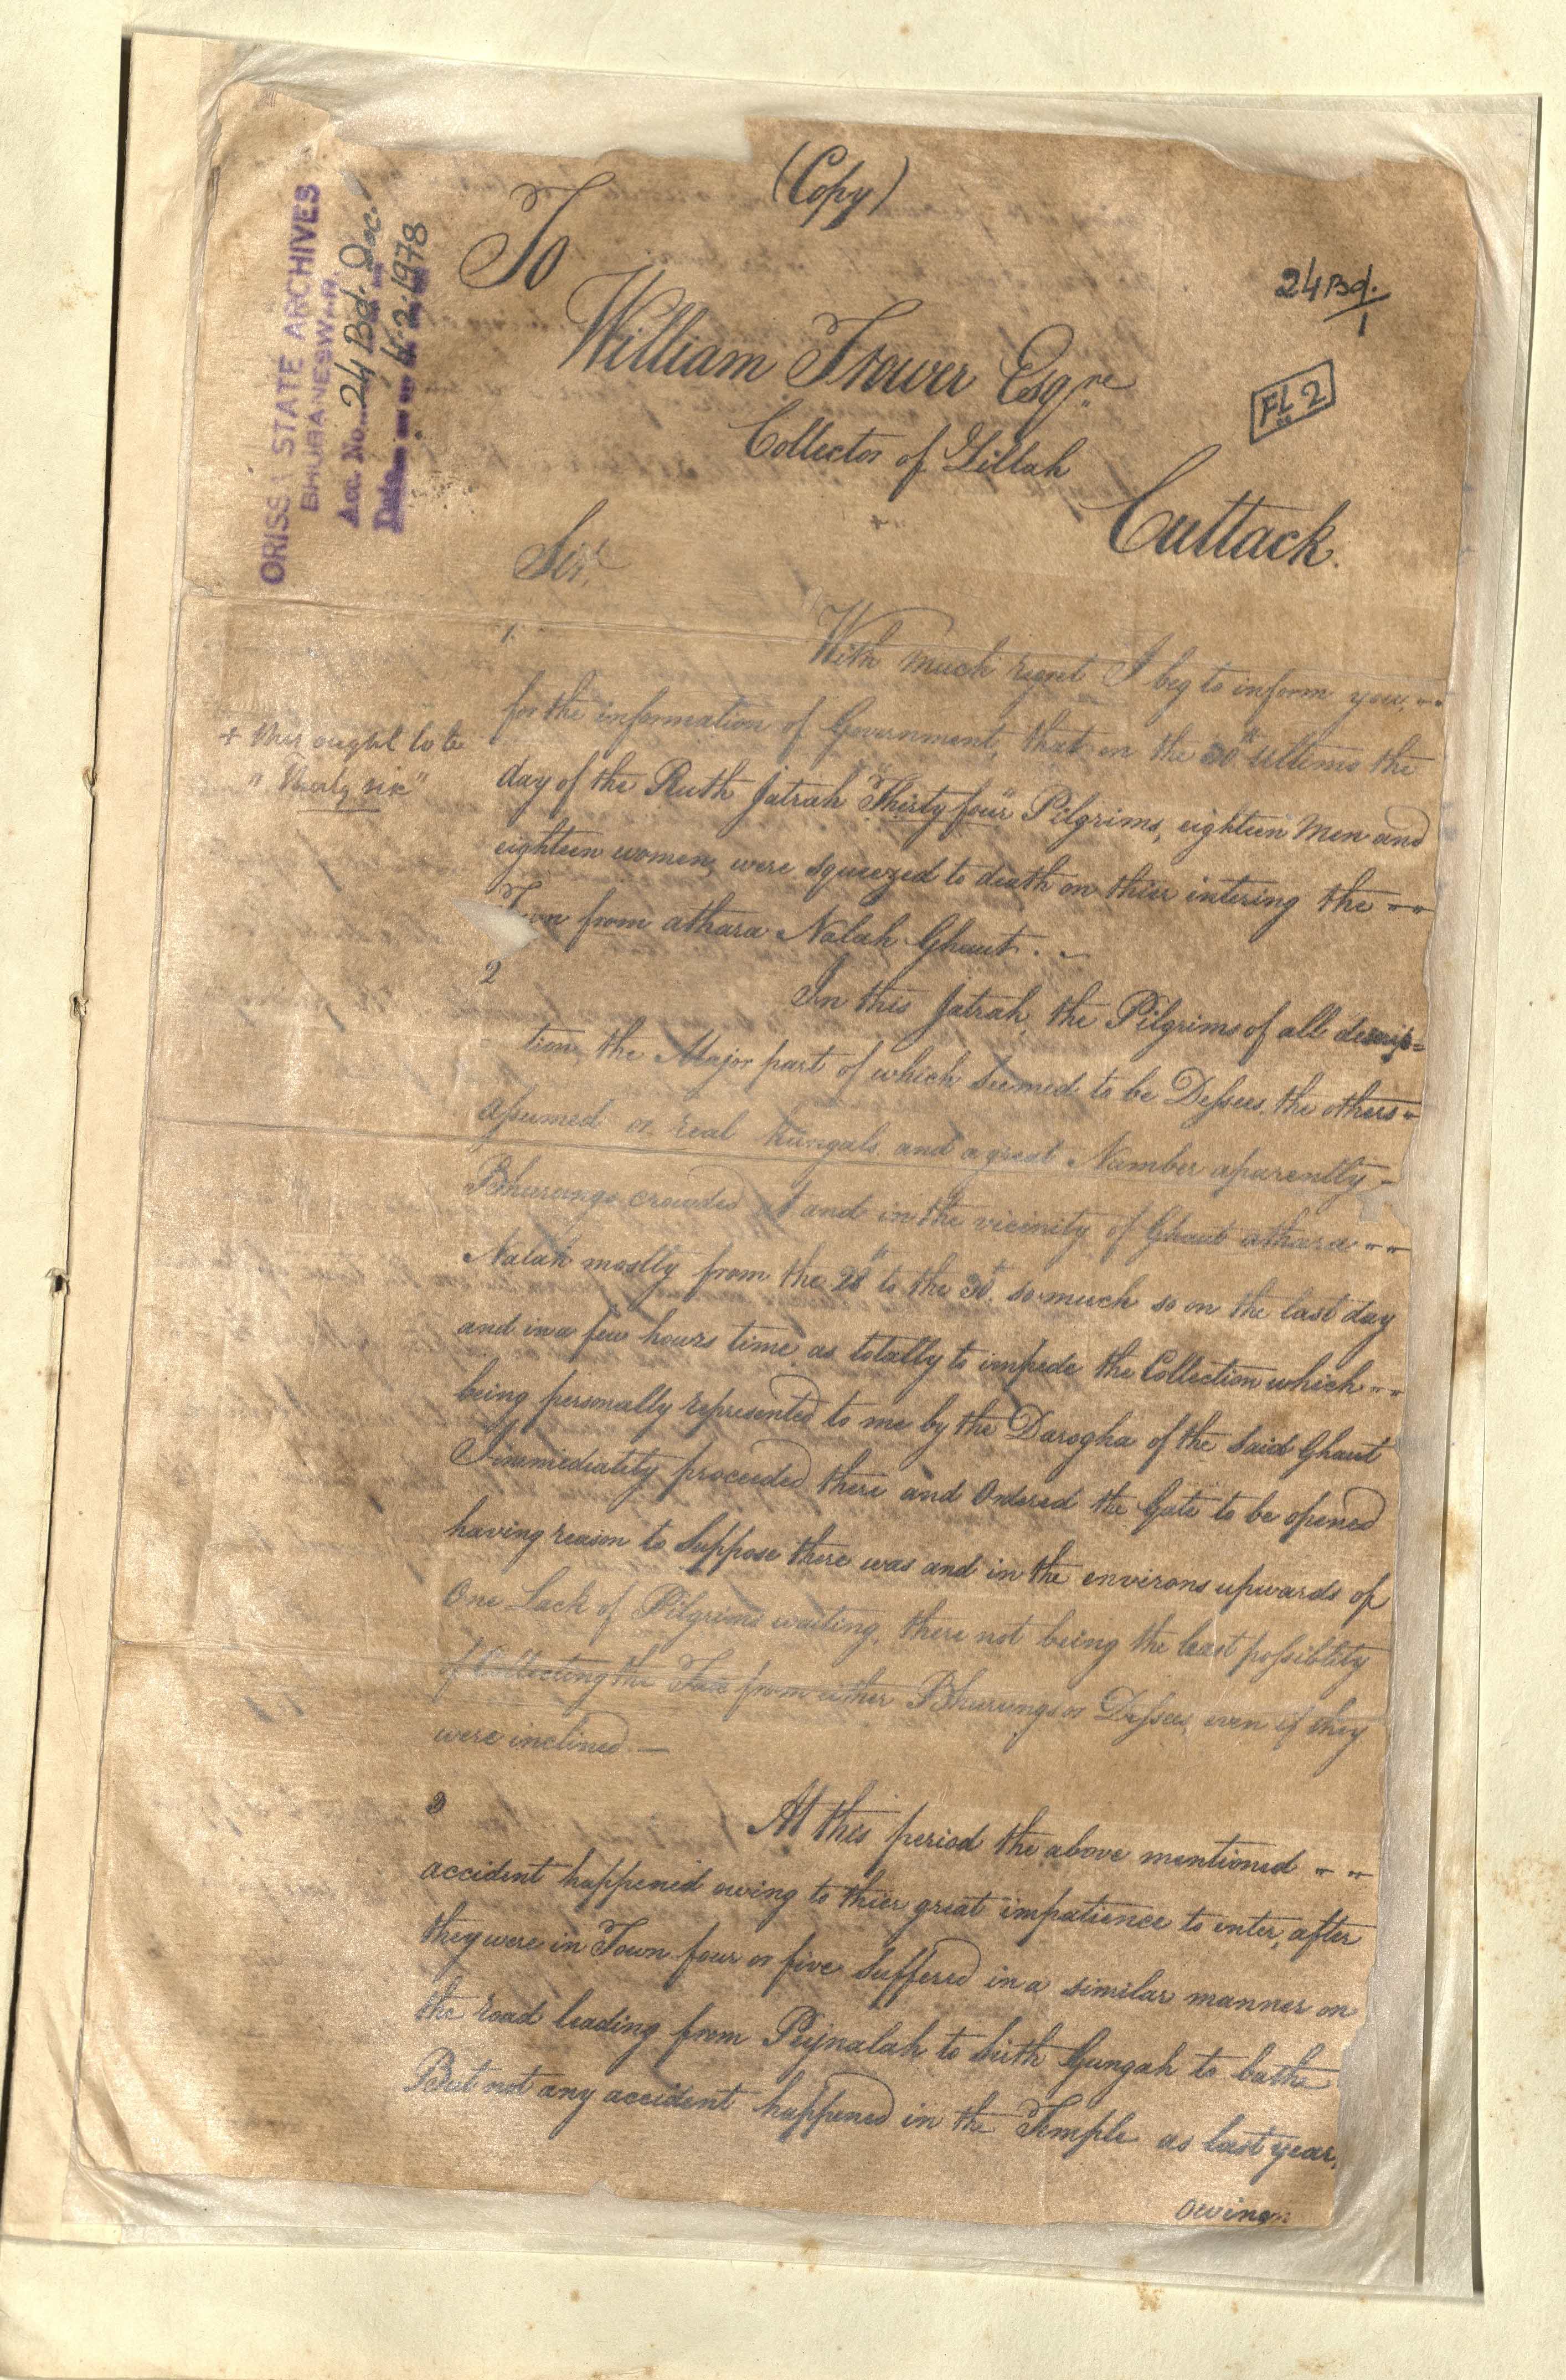 (Copy)
ORISSA STATE ARCHIVES
BHUBANESWAR
Acc. No. 24 Bd. Doc.
Date 4.2.1978
24 Bd.
1
FL 2
To
William Trower Esqre
Collector of Zillah
Cuttack.
Sir,
1. With much regret I beg to inform you,
for the information of Government, that on the 30th ultimo the
day of the Ruth Jatrah "Thirty four" Pilgrims, eighteen Men and
+ this ought to be
"Thirty six"
eighteen women, were squeezed to death on thier intering the
Town from athara Nalah Ghaut.
2 In this Jatrah, the Pilgrims of all descrip=
tion, the Major part of which seemed to be Dessees, the others
assumed or real Kungals, and a great Number aparently
Bhurungs crowded at and in the vicinity of Ghaut athara
Nalah mostly from the 28th to the 30th. so much so on the last day
and in a few hours time as totally to impede the Collection which
being personally represented to me by the Darogha of the said Ghaut
I immediately proceeded there and Ordered the Gate to be opened
having reason to Suppose there was and in the environs upwards of
One Lack of Pilgrims waiting, there not being the least possiblity
of Collecting the Tax from either Bhurungs or Dessees, even if they
were inclined.—
3 At this period the above mentioned
accident happened owing to thier great impatience to enter, after
they were in Town four or five Suffered in a similar manner on
the road leading from to Gungah to bathe
But not any accident happened in the Temple as last year,
owing